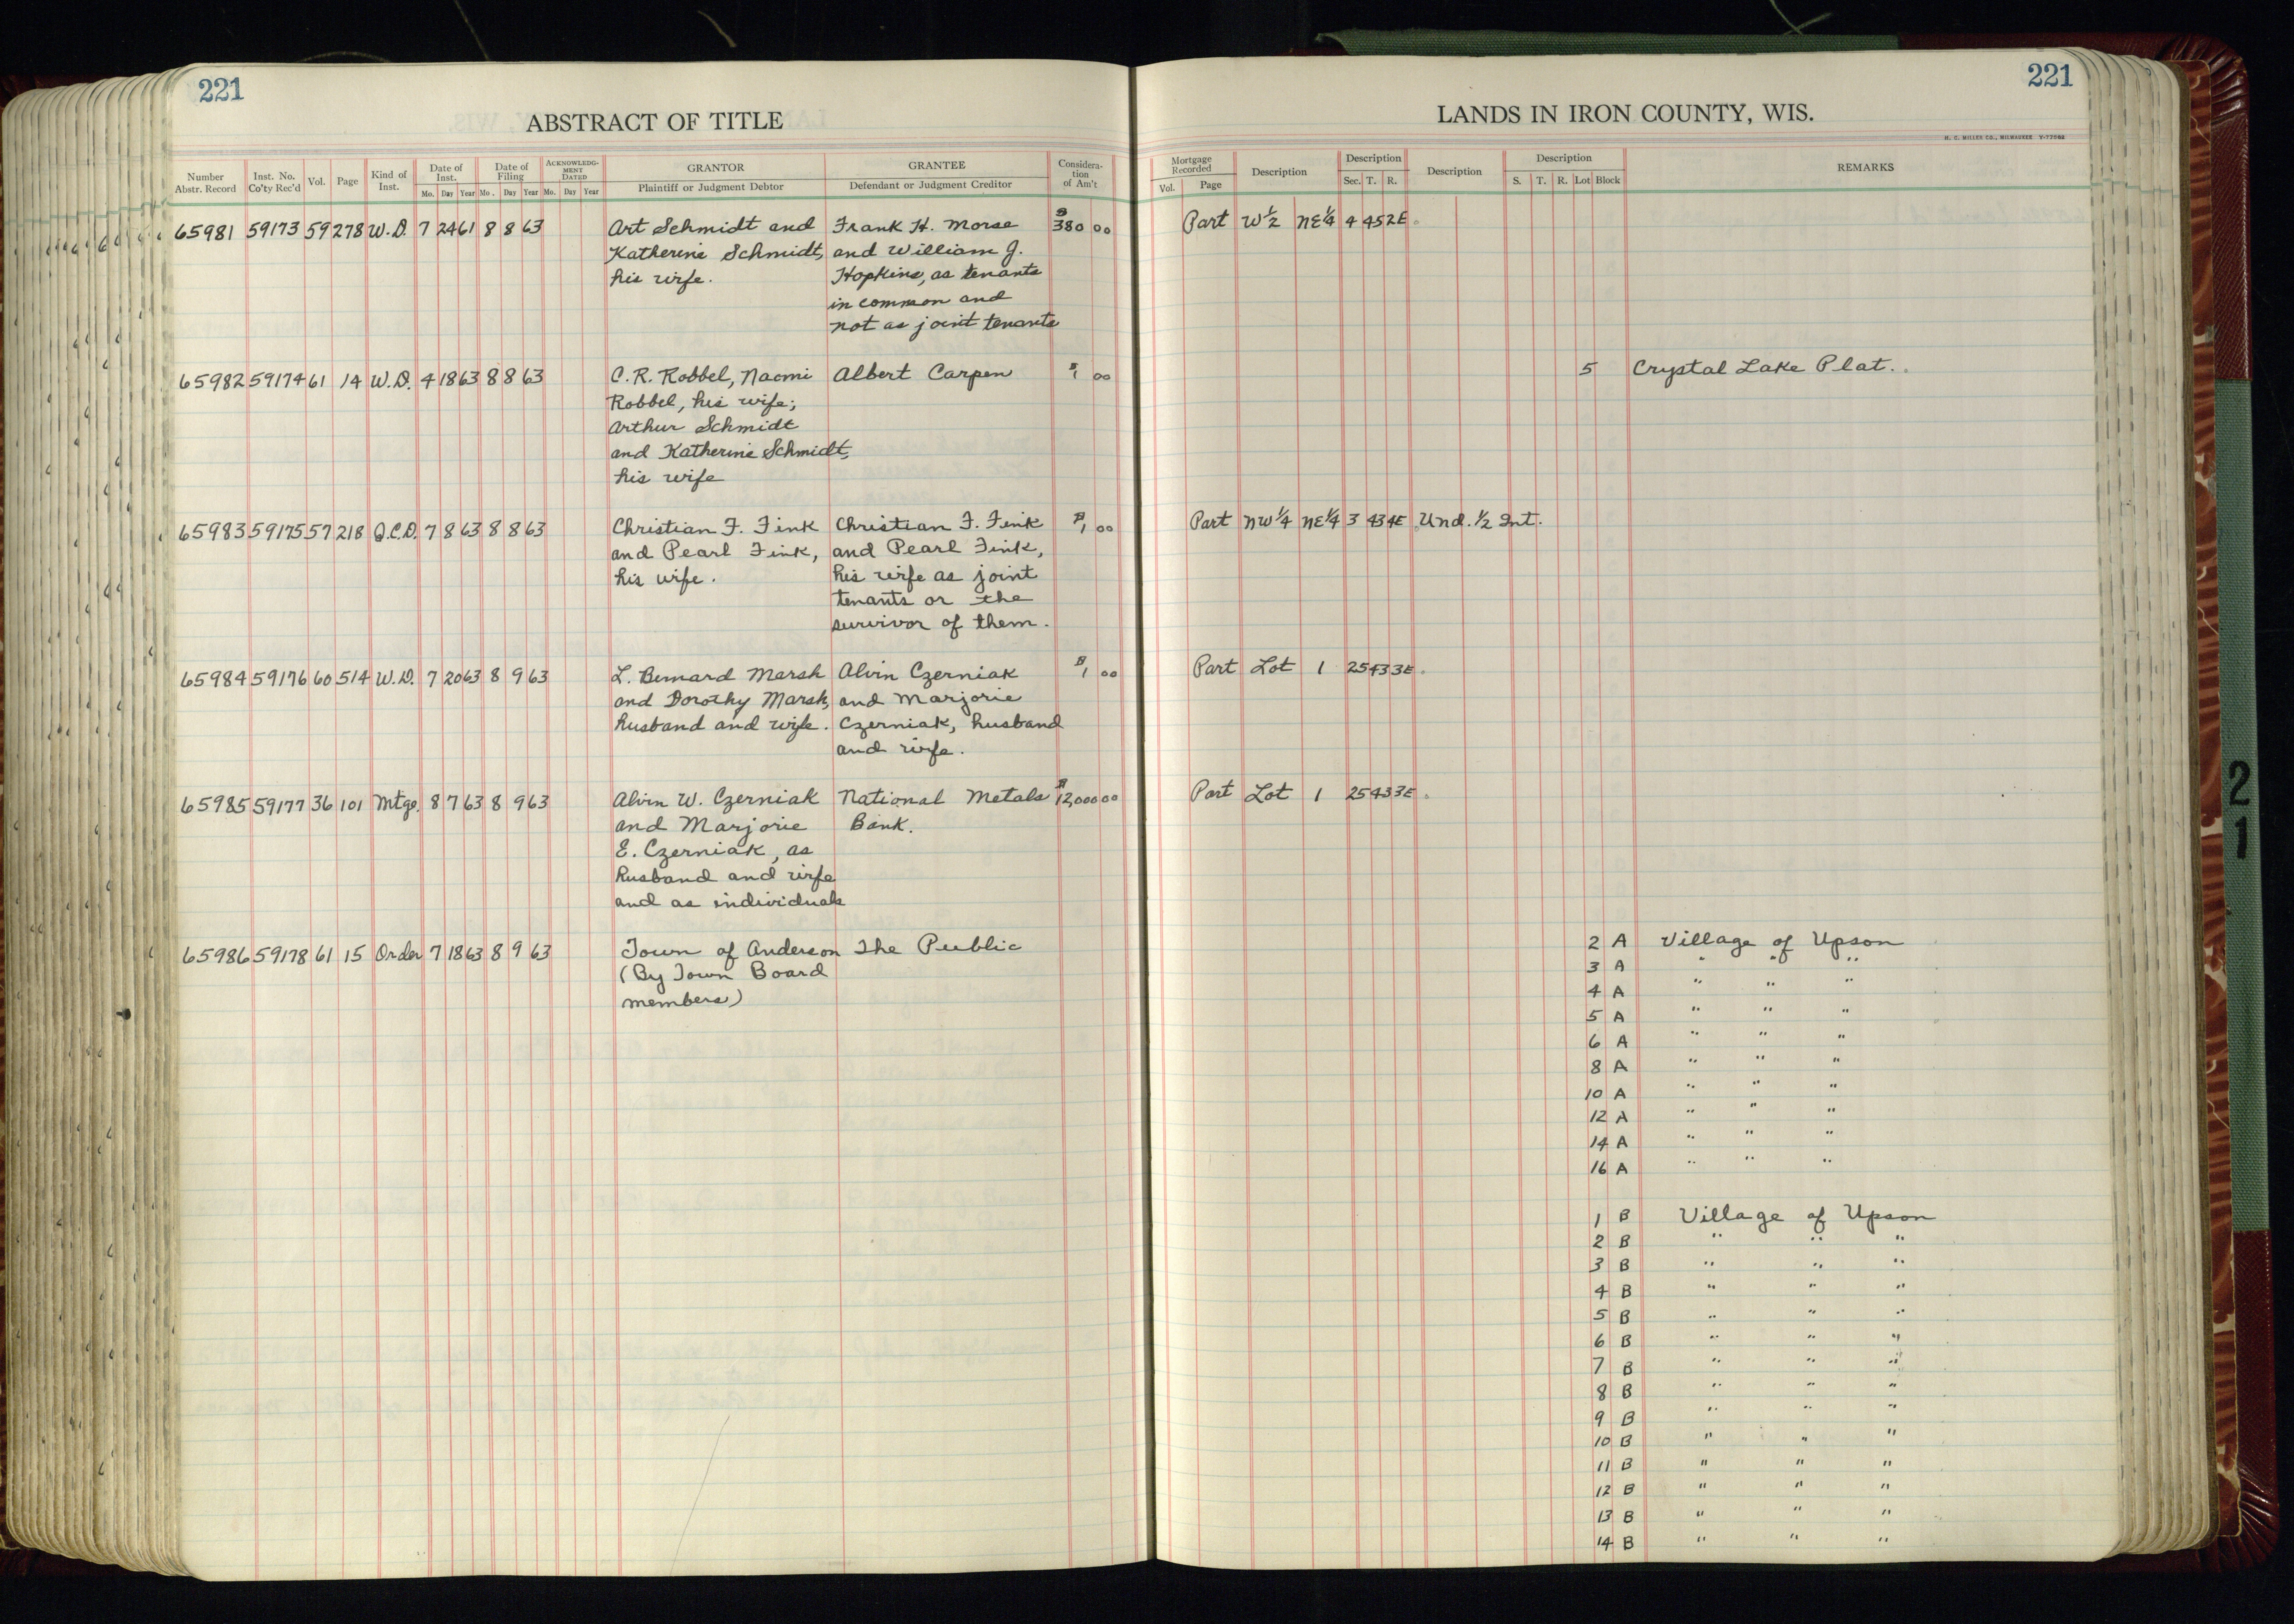 221
ABSTRACT OF TITLE
Number Abstr. Record | Inst. No. Co'ty Rec'd | Vol. | Page | Kind of Inst. | Date of Inst. Mo. Day Year | Date of Filing Mo. Day Year | ACKNOWLEDGMENT DATED Mo. Day Year | GRANTOR Plaintiff or Judgment Debtor | GRANTEE Defendant or Judgment Creditor | Considera-tion of Am't
65981 59173 59 278 W.D. 7 24 61 8 8 63 Art Schmidt and Frank H. Morse $380 00
Katherine Schmidt, and William J.
his wife. Hopkins, as tenants
in common and
not as joint tenants
65982 59174 61 14 W.D. 4 18 63 8 8 63 C.R. Robbel, Naomi Albert Carpen $1 00
Robbel, his wife;
Arthur Schmidt
and Katherine Schmidt,
his wife
65983 59175 57 218 Q.C.D. 7 8 63 8 8 63 Christian F. Fink Christian F. Fink $1 00
and Pearl Fink, and Pearl Fink,
his wife. his wife as joint
tenants or the
survivor of them.
65984 59176 60 514 W.D. 7 20 63 8 9 63 L. Bernard Marsh Alvin Czerniak $1 00
and Dorothy Marsh, and Marjorie
husband and wife. Czerniak, husband
and wife.
65985 59177 36 101 Mtge. 8 7 63 8 9 63 Alvin W. Czerniak National Metals $12,000 00
and Marjorie Bank.
E. Czerniak, as
husband and wife
and as individuals
65986 59178 61 15 Order 7 18 63 8 9 63 Town of Anderson The Public
(By Town Board
members)
221
LANDS IN IRON COUNTY, WIS.
H. C. MILLER CO., MILWAUKEE
Mortgage Recorded Vol. Page | Description | Description Sec. T. R. | Description | Description S. T. R. Lot Block | REMARKS
Part W½ NE¼ 4 45 2E
5 Crystal Lake Plat.
Part NW¼ NE¼ 3 43 4E Und. ½ Int.
Part Lot 1 25 43 3E
Part Lot 1 25 43 3E
2 A Village of Upson
3 A " " "
4 A " " "
5 A " " "
6 A " " "
8 A " " "
10 A " " "
12 A " " "
14 A " " "
16 A " " "
1 B Village of Upson
2 B " " "
3 B " " "
4 B " " "
5 B " " "
6 B " " "
7 B " " "
8 B " " "
9 B " " "
10 B " " "
11 B " " "
12 B " " "
13 B " " "
14 B " " "
21